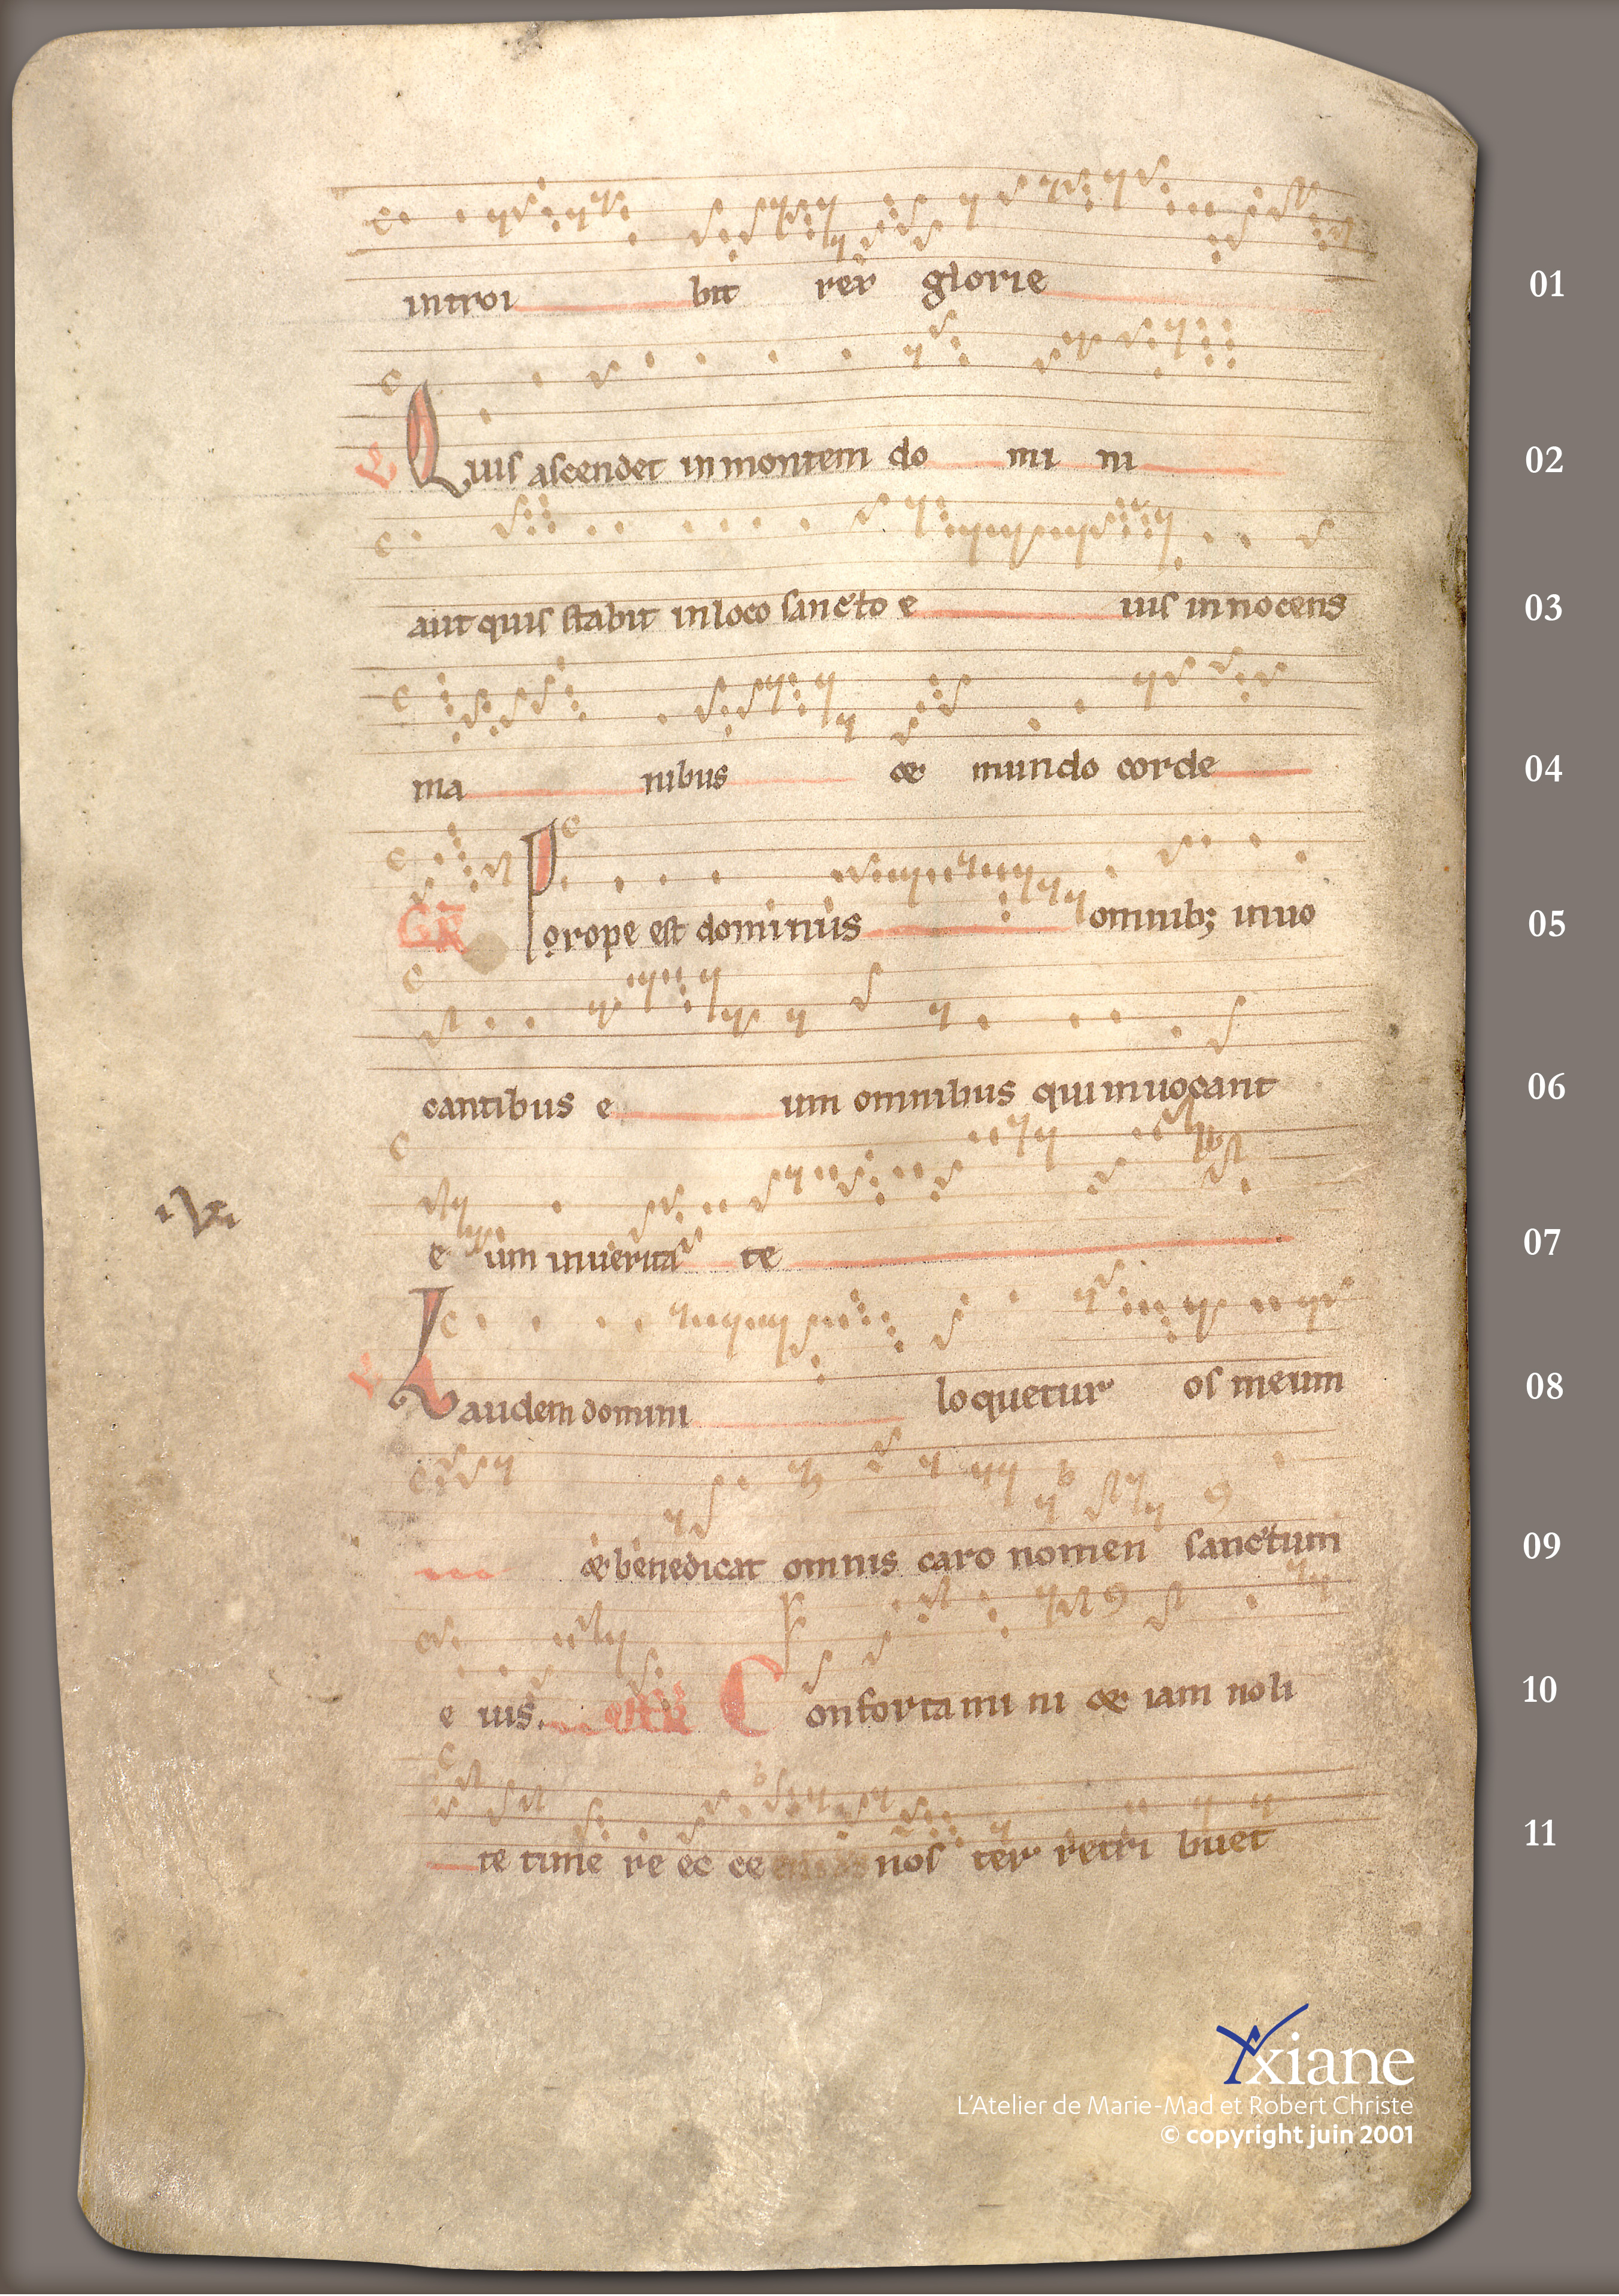 introi bit rex glorie 01
V Quis ascendet in montem do mi ni 02
aut quis stabit in loco sancto e ius innocens 03
ma nibus & mundo corde 04
GR Prope est dominus omnib; inuo 05
cantibus e um omnibus qui inuocant 06
e um in uerita te 07
V Laudem domini loquetur os meum 08
& benedicat omnis caro nomen sanctum 09
e ius. Confortamini & iam noli 10
te time re ec ce nos ter retri buet 11
Axiane
L'Atelier de Marie-Mad et Robert Christe
© copyright juin 2001